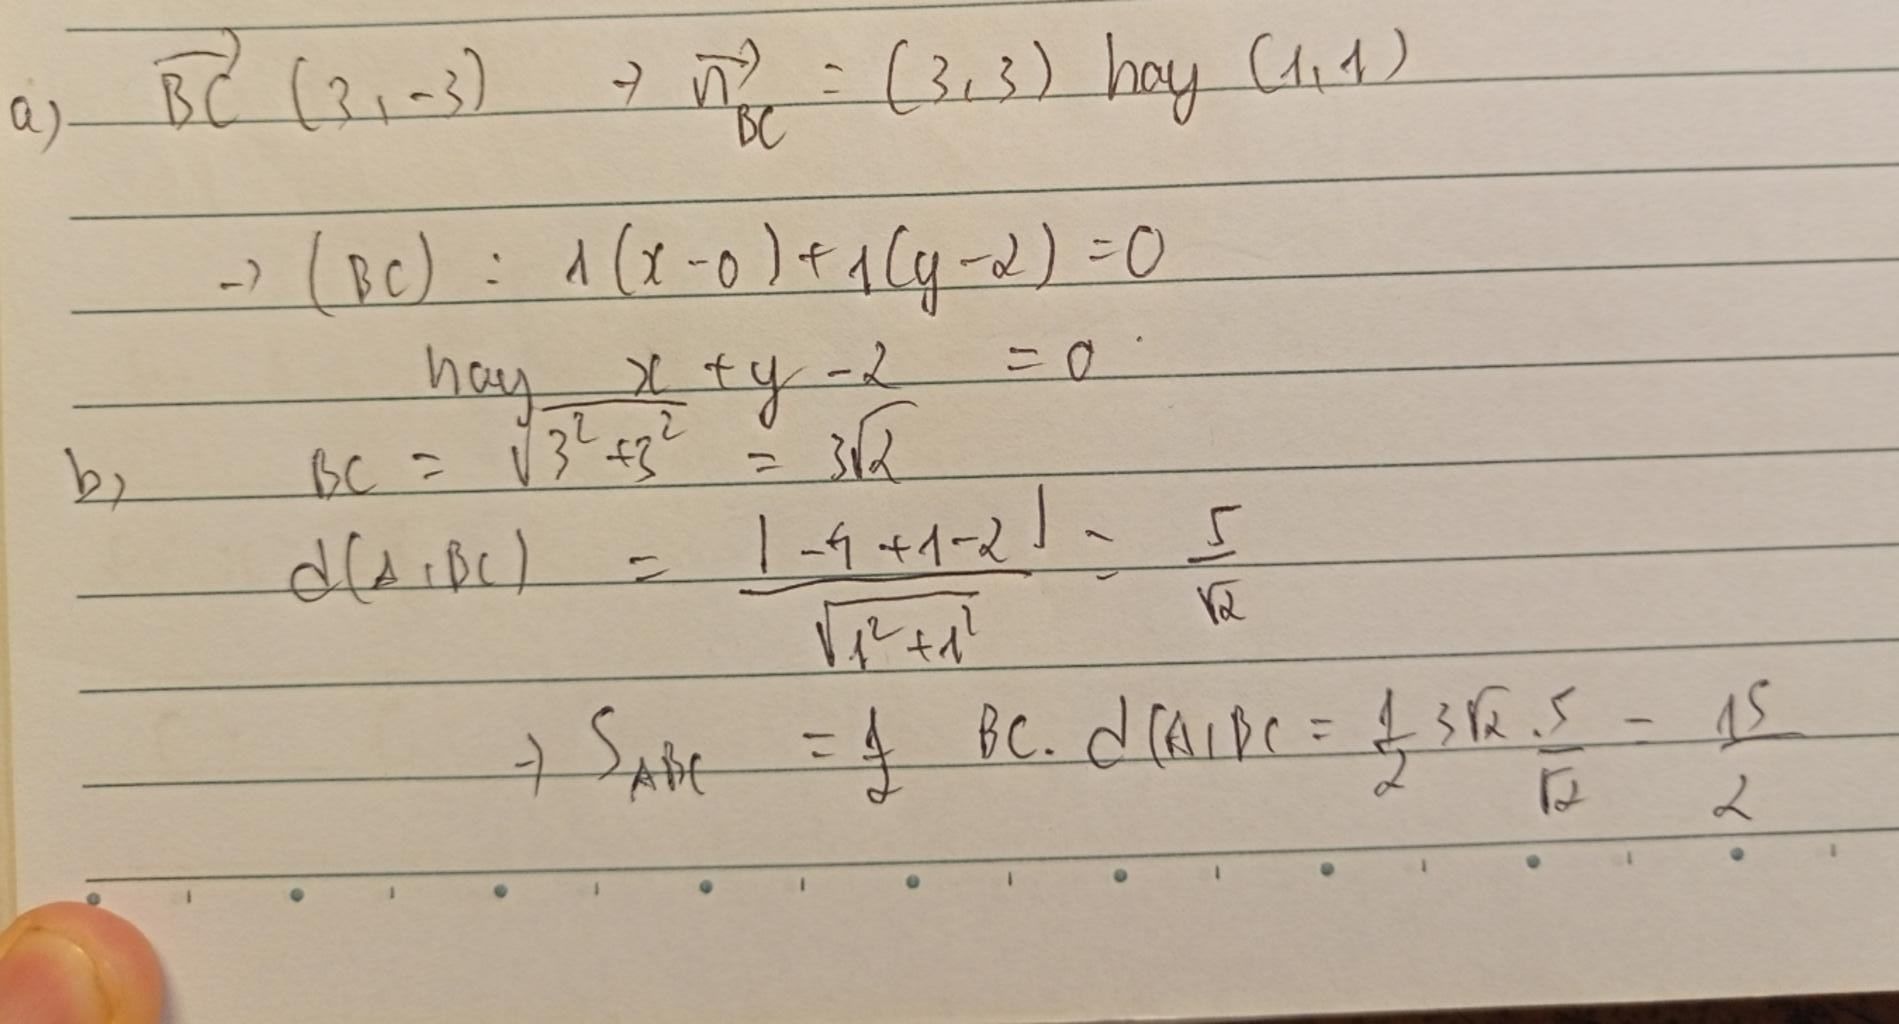 a) \overrightarrow{BC} (3, -3) → \overrightarrow{n}_{BC} = (3, 3) hay (1, 1)
→ (BC) : 1(x - 0) + 1(y - 2) = 0
hay x + y - 2 = 0
b) BC = √(3² + 3²) = 3√2
d(A, BC) = |-4 + 1 - 2| / √(1² + 1²) = 5/√2
→ S_{ABC} = 1/2 BC. d(A, BC = 1/2 3√2 . 5/√2 = 15/2